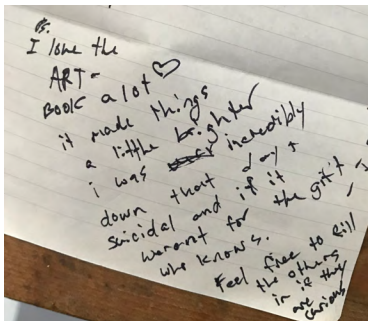 PS.
I love the
ART-
BOOK a lot ♡
it made things
a little brighter
i was incredibly
down that day +
suicidal and if it
werent for the gift
who knows.
Feel free to fill
the others
in if they
are curious